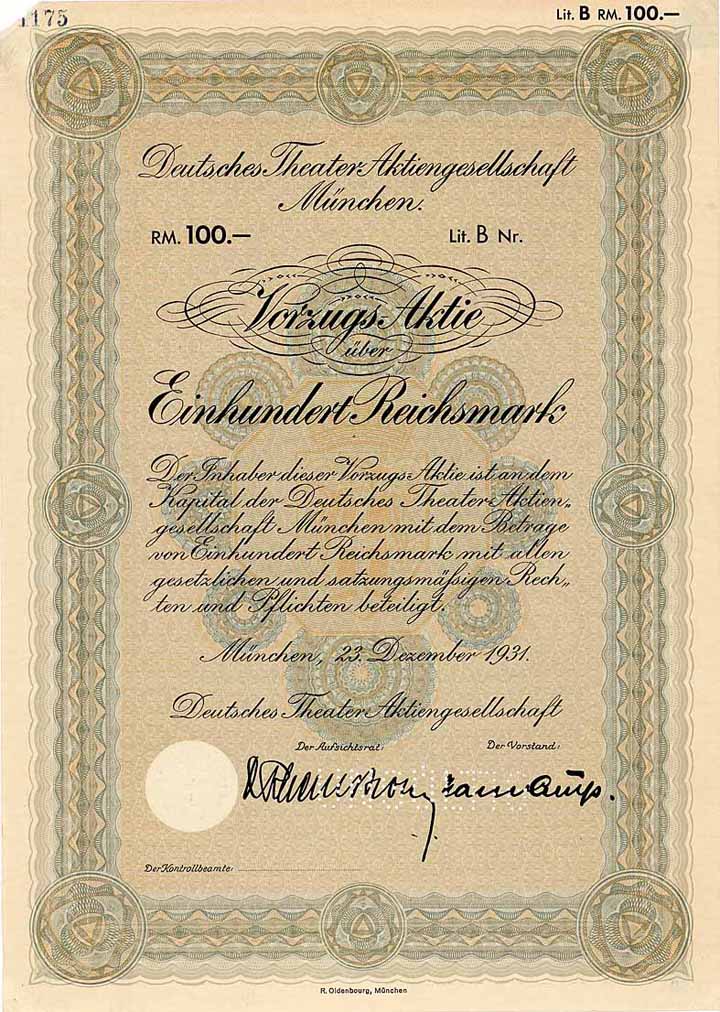 1175
Lit. B RM. 100.—
Deutsches Theater-Aktiengesellschaft
München.
RM. 100.—
Lit. B Nr.
Vorzugs-Aktie
über
Einhundert Reichsmark
Der Inhaber dieser Vorzugs-Aktie ist an dem
Kapital der Deutsches Theater-Aktien-
gesellschaft München mit dem Betrage
von Einhundert Reichsmark mit allen
gesetzlichen und satzungsmäßigen Rech-
ten und Pflichten beteiligt.
München, 23. Dezember 1931.
Deutsches Theater-Aktiengesellschaft
Der Aufsichtsrat:
Der Vorstand:
Der Kontrollbeamte:
R. Oldenbourg, München